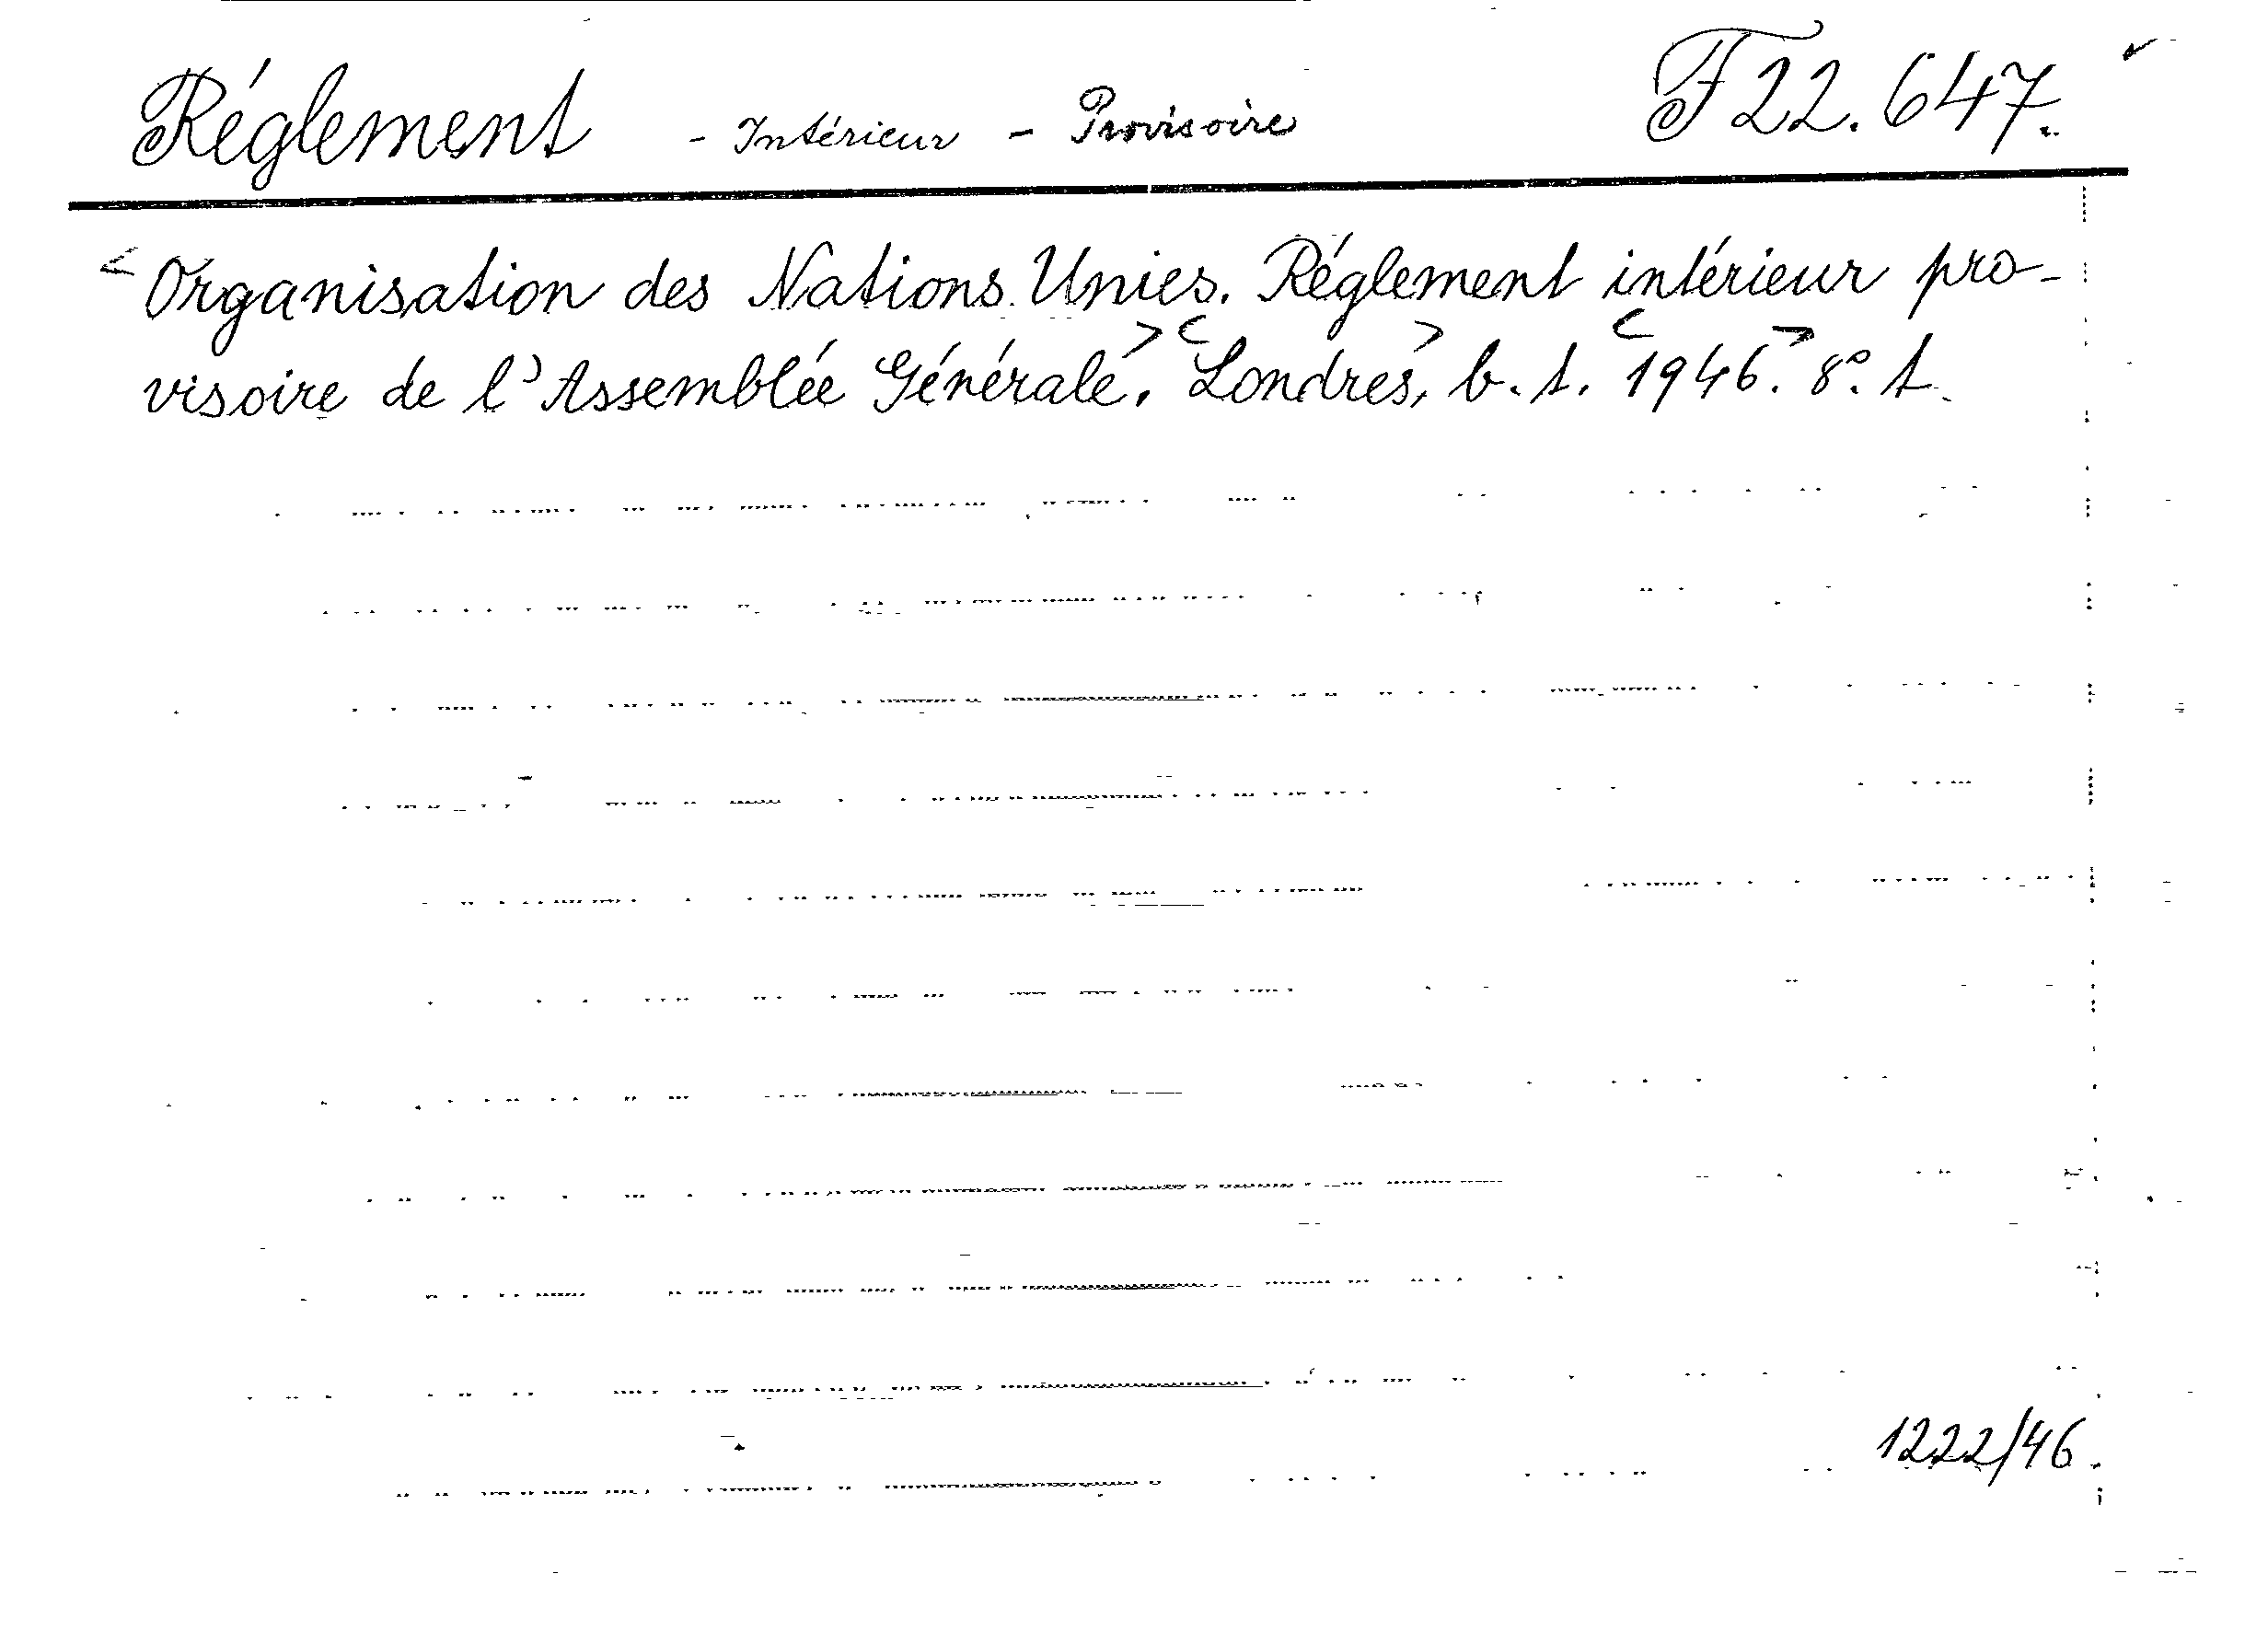 Réglement - Intérieur - Provisoire F 22.647.
<Organisation des Nations Unies. Réglement intérieur pro-
visoire de l'Assemblée Générale>. <Londres>, b. t. <1946>. 8°. t.
1222/46.